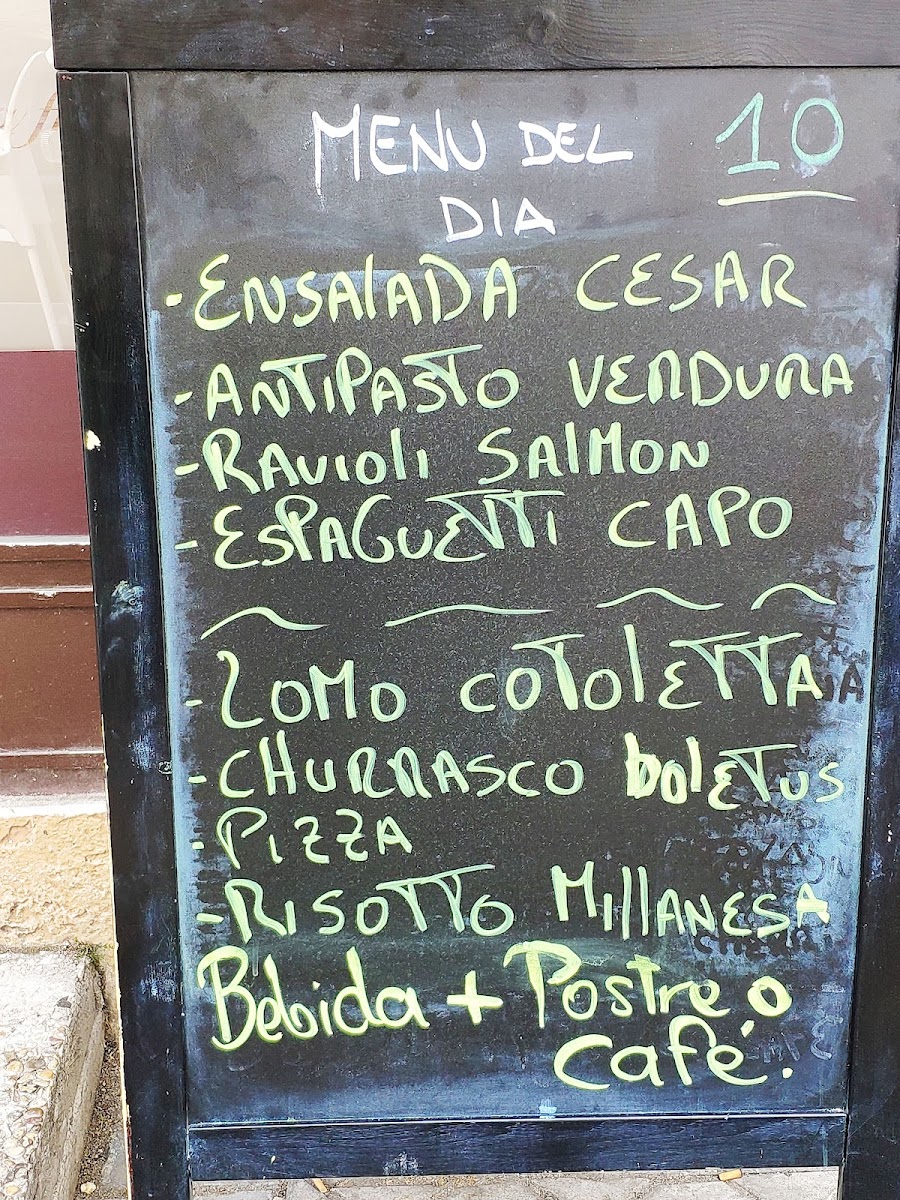 MENU DEL 10
DIA
- ENSALADA CESAR
- ANTIPASTO VERDURA
- RAVIOLI SALMON
- ESPAGUETTI CAPO
- LOMO COTOLETTA
- CHURRASCO bolETUS
- PIZZA
- RISOTTO MILLANESA
Bebida + Postre o
Café.